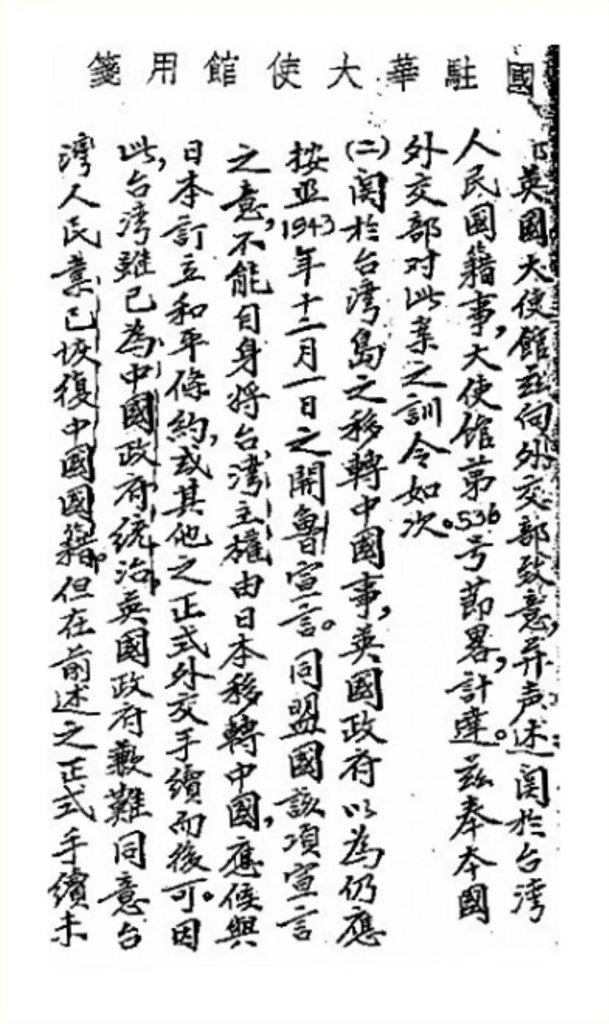 國駐華大使館用箋
英國大使館茲向外交部致意,并声述:関於台湾
人民國籍事,大使館苐536号節畧,計達。茲奉本國
外交部对此案之訓令如次。
(二)関於台湾島之移轉中國事,英國政府以為仍應
按1943年十二月一日之開魯宣言。同盟國該項宣言
之意,不能自身將台湾主權由日本移轉中國,應候與
日本訂立和平條約,或其他之正式外交手續而後可。因
此,台湾雖已為中國政府統治,英國政府歉難同意台
湾人民業已恢復中國國籍。但在前述之正式手續未